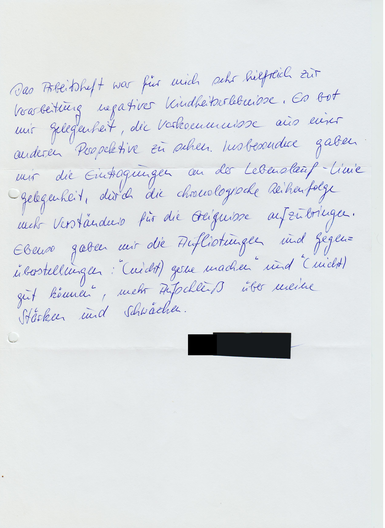 Das Arbeitsheft war für mich sehr hilfreich zur
Verarbeitung negativer Kindheitserlebnisse. Es bot
mir gelegenheit, die Vorkommnisse aus einer
anderen Perspektive zu sehen. Insbesondere gaben
mir die Eintragungen an der Lebenslauf-Linie
gelegenheit, durch die chronologische Reihenfolge
mehr Verständnis für die Ereignisse aufzubringen.
Ebenso gaben mir die Auflistungen und Gegen=
überstellungen: "(nicht) gerne machen" und "(nicht)
gut können", mehr Aufschluß über meine
Stärken und Schwächen.